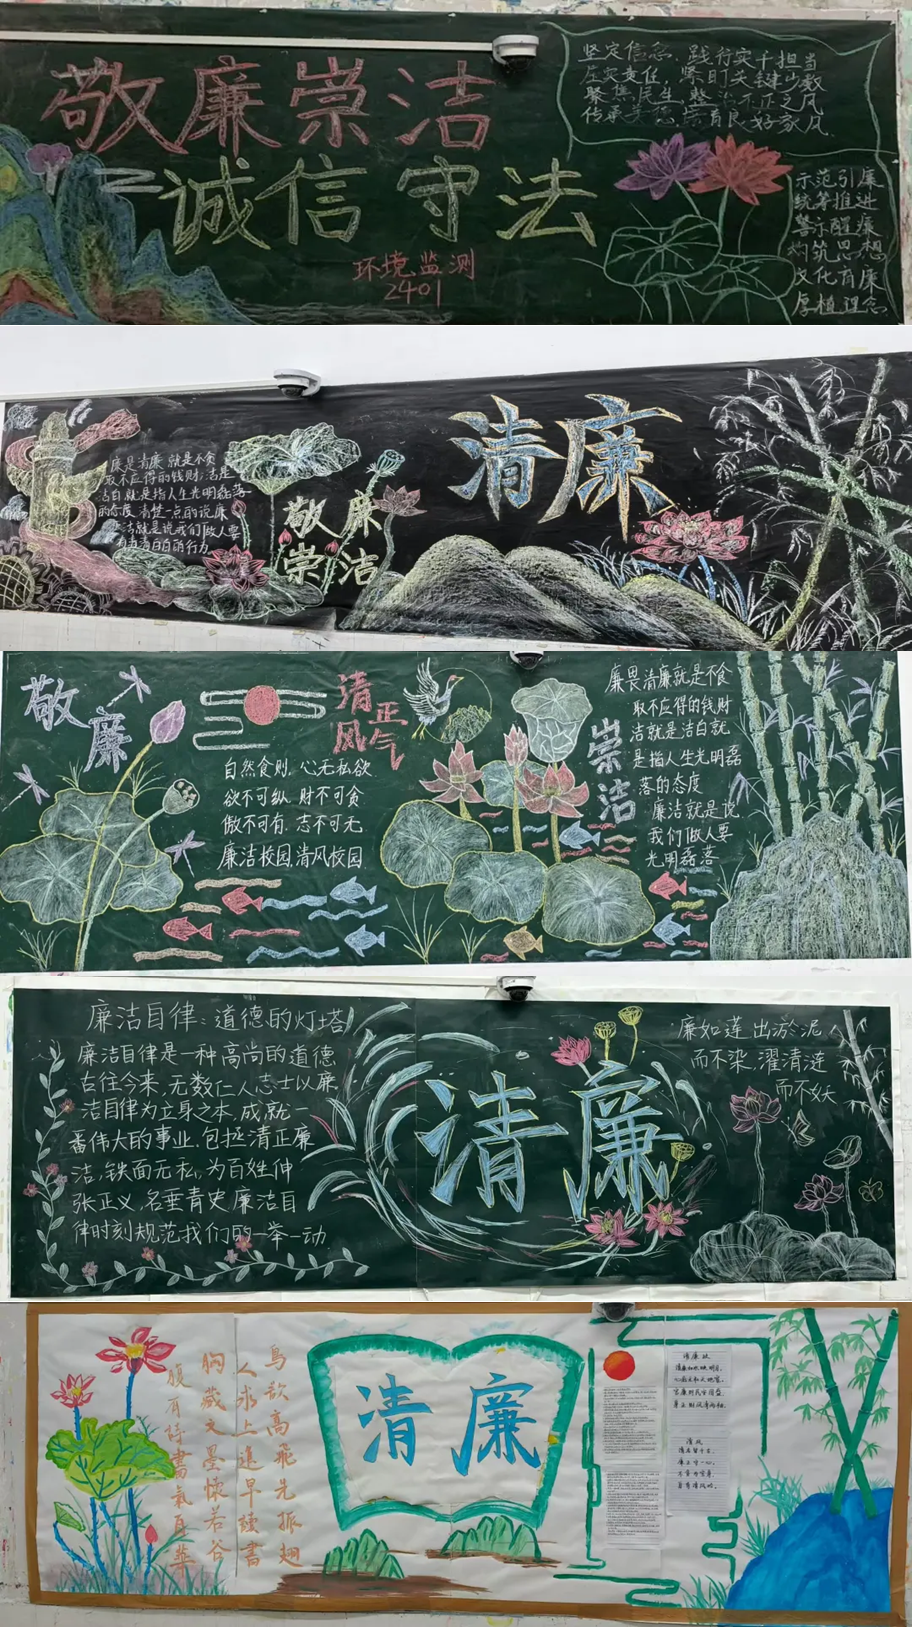 敬廉崇洁
诚信守法
环境监测
2401
坚定信念，践行实干担当
压实责任，紧盯关键少数
聚焦民生，整治不正之风
传承美德，培育良好家风
示范引廉
统筹推进
警示醒廉
构筑思想
文化育廉
厚植理念
廉是清廉就是不贪
取不应得的钱财;洁是
洁白就是指人生光明磊落
的态度.清楚一点的说廉
洁就是说我们做人要
有清清白白的行为
敬廉
崇洁
清廉
敬廉
清风
正气
自然食则.心无私欲
欲不可纵.财不可贪
傲不可有.志不可无
廉洁校园.清风校园
崇洁
廉畏清廉就是不食
取不应得的钱财
洁就是洁白就
是指人生光明磊
落的态度
廉洁就是说
我们做人要
光明磊落
廉洁自律:道德的灯塔
廉洁自律是一种高尚的道德
古往今来,无数仁人志士以廉
洁自律为立身之本,成就一
番伟大的事业.包拯清正廉
洁,铁面无私,为百姓伸
张正义,名垂青史廉洁自
律时刻规范我们的一举一动
清廉
廉如莲 出淤泥
而不染,濯清涟
而不妖
鸟欲高飞先振翅
人求上进早读书
胸藏文墨怀若谷
腹有诗书氣自华
清廉